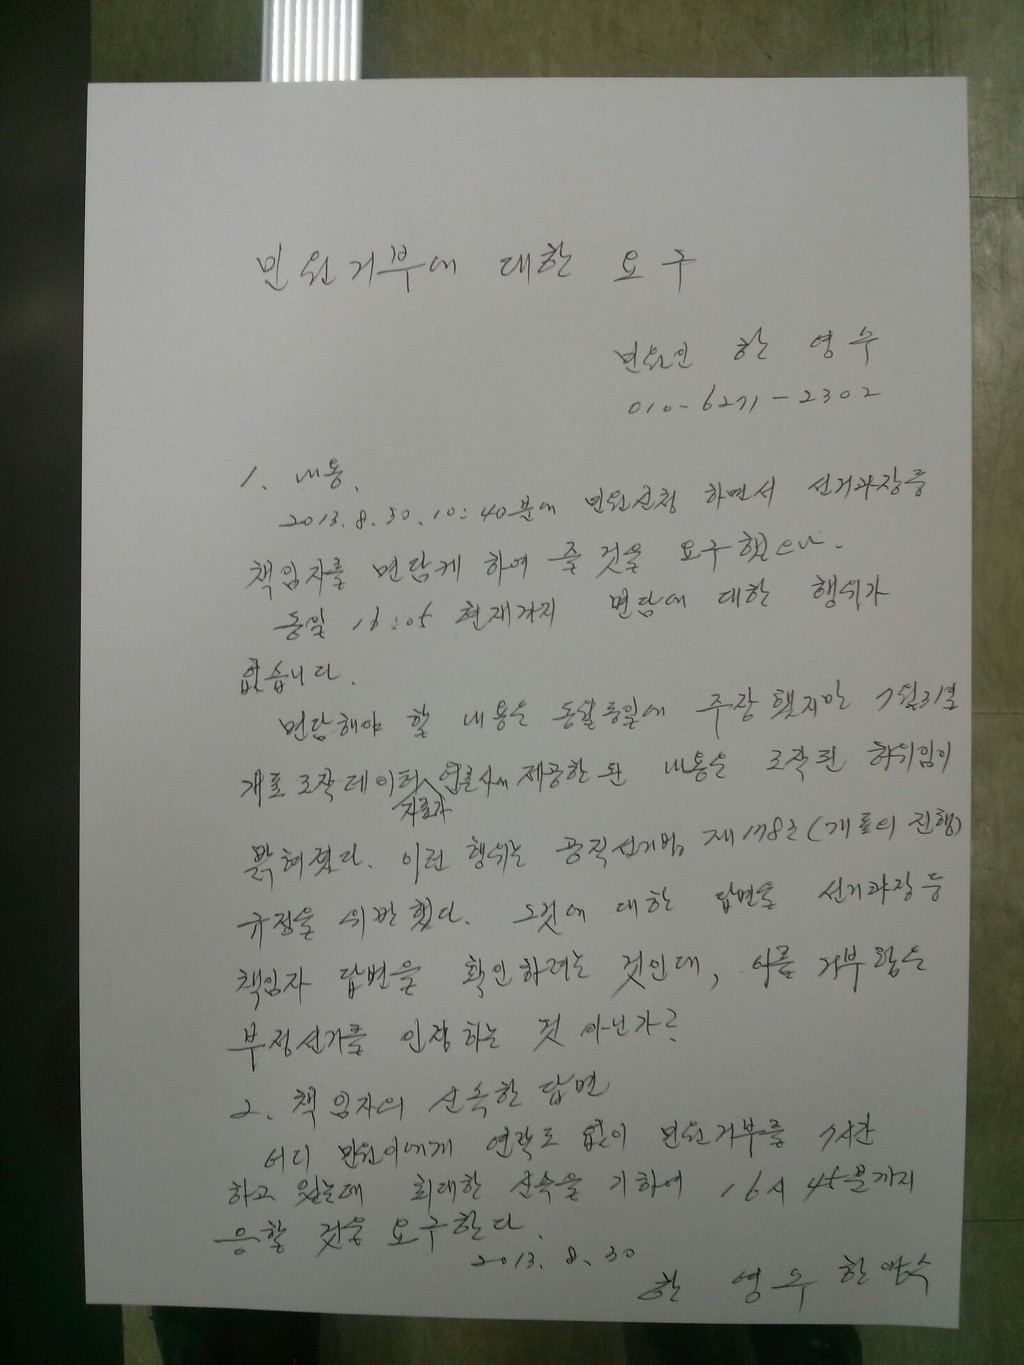 민원거부에 대한 요구
민원인 한 영 수
010-6271-2302
1. 내용.
2013.8.30.10:40분에 민원신청 하면서 선거과장등
책임자를 면담케 하여 줄 것을 요구했으나.
동일 16:05 현재까지 면담에 대한 행위가
없습니다.
면담해야 할 내용은 동일에 주장했지만 7월31일
개표 조작 데이터 언론사에 제공한 된 내용은 조작된 허위임이
자료가
밝혀졌다. 이런 행위는 공직선거법 제178조(개표의 진행)
규정을 위반했다. 그것에 대한 답변을 선거과장등
책임자 답변을 확인하려는 것인데, 이를 거부함은
부정선거를 인정하는 것 아닌가?
2. 책임자의 신속한 답변
어디 민원인에게 연락도 없이 민원거부를 7시간
하고 있는데 최대한 신속을 기하여 16시 45분까지
응할 것을 요구한다.
2013. 8. 30
한 영 수 한영수